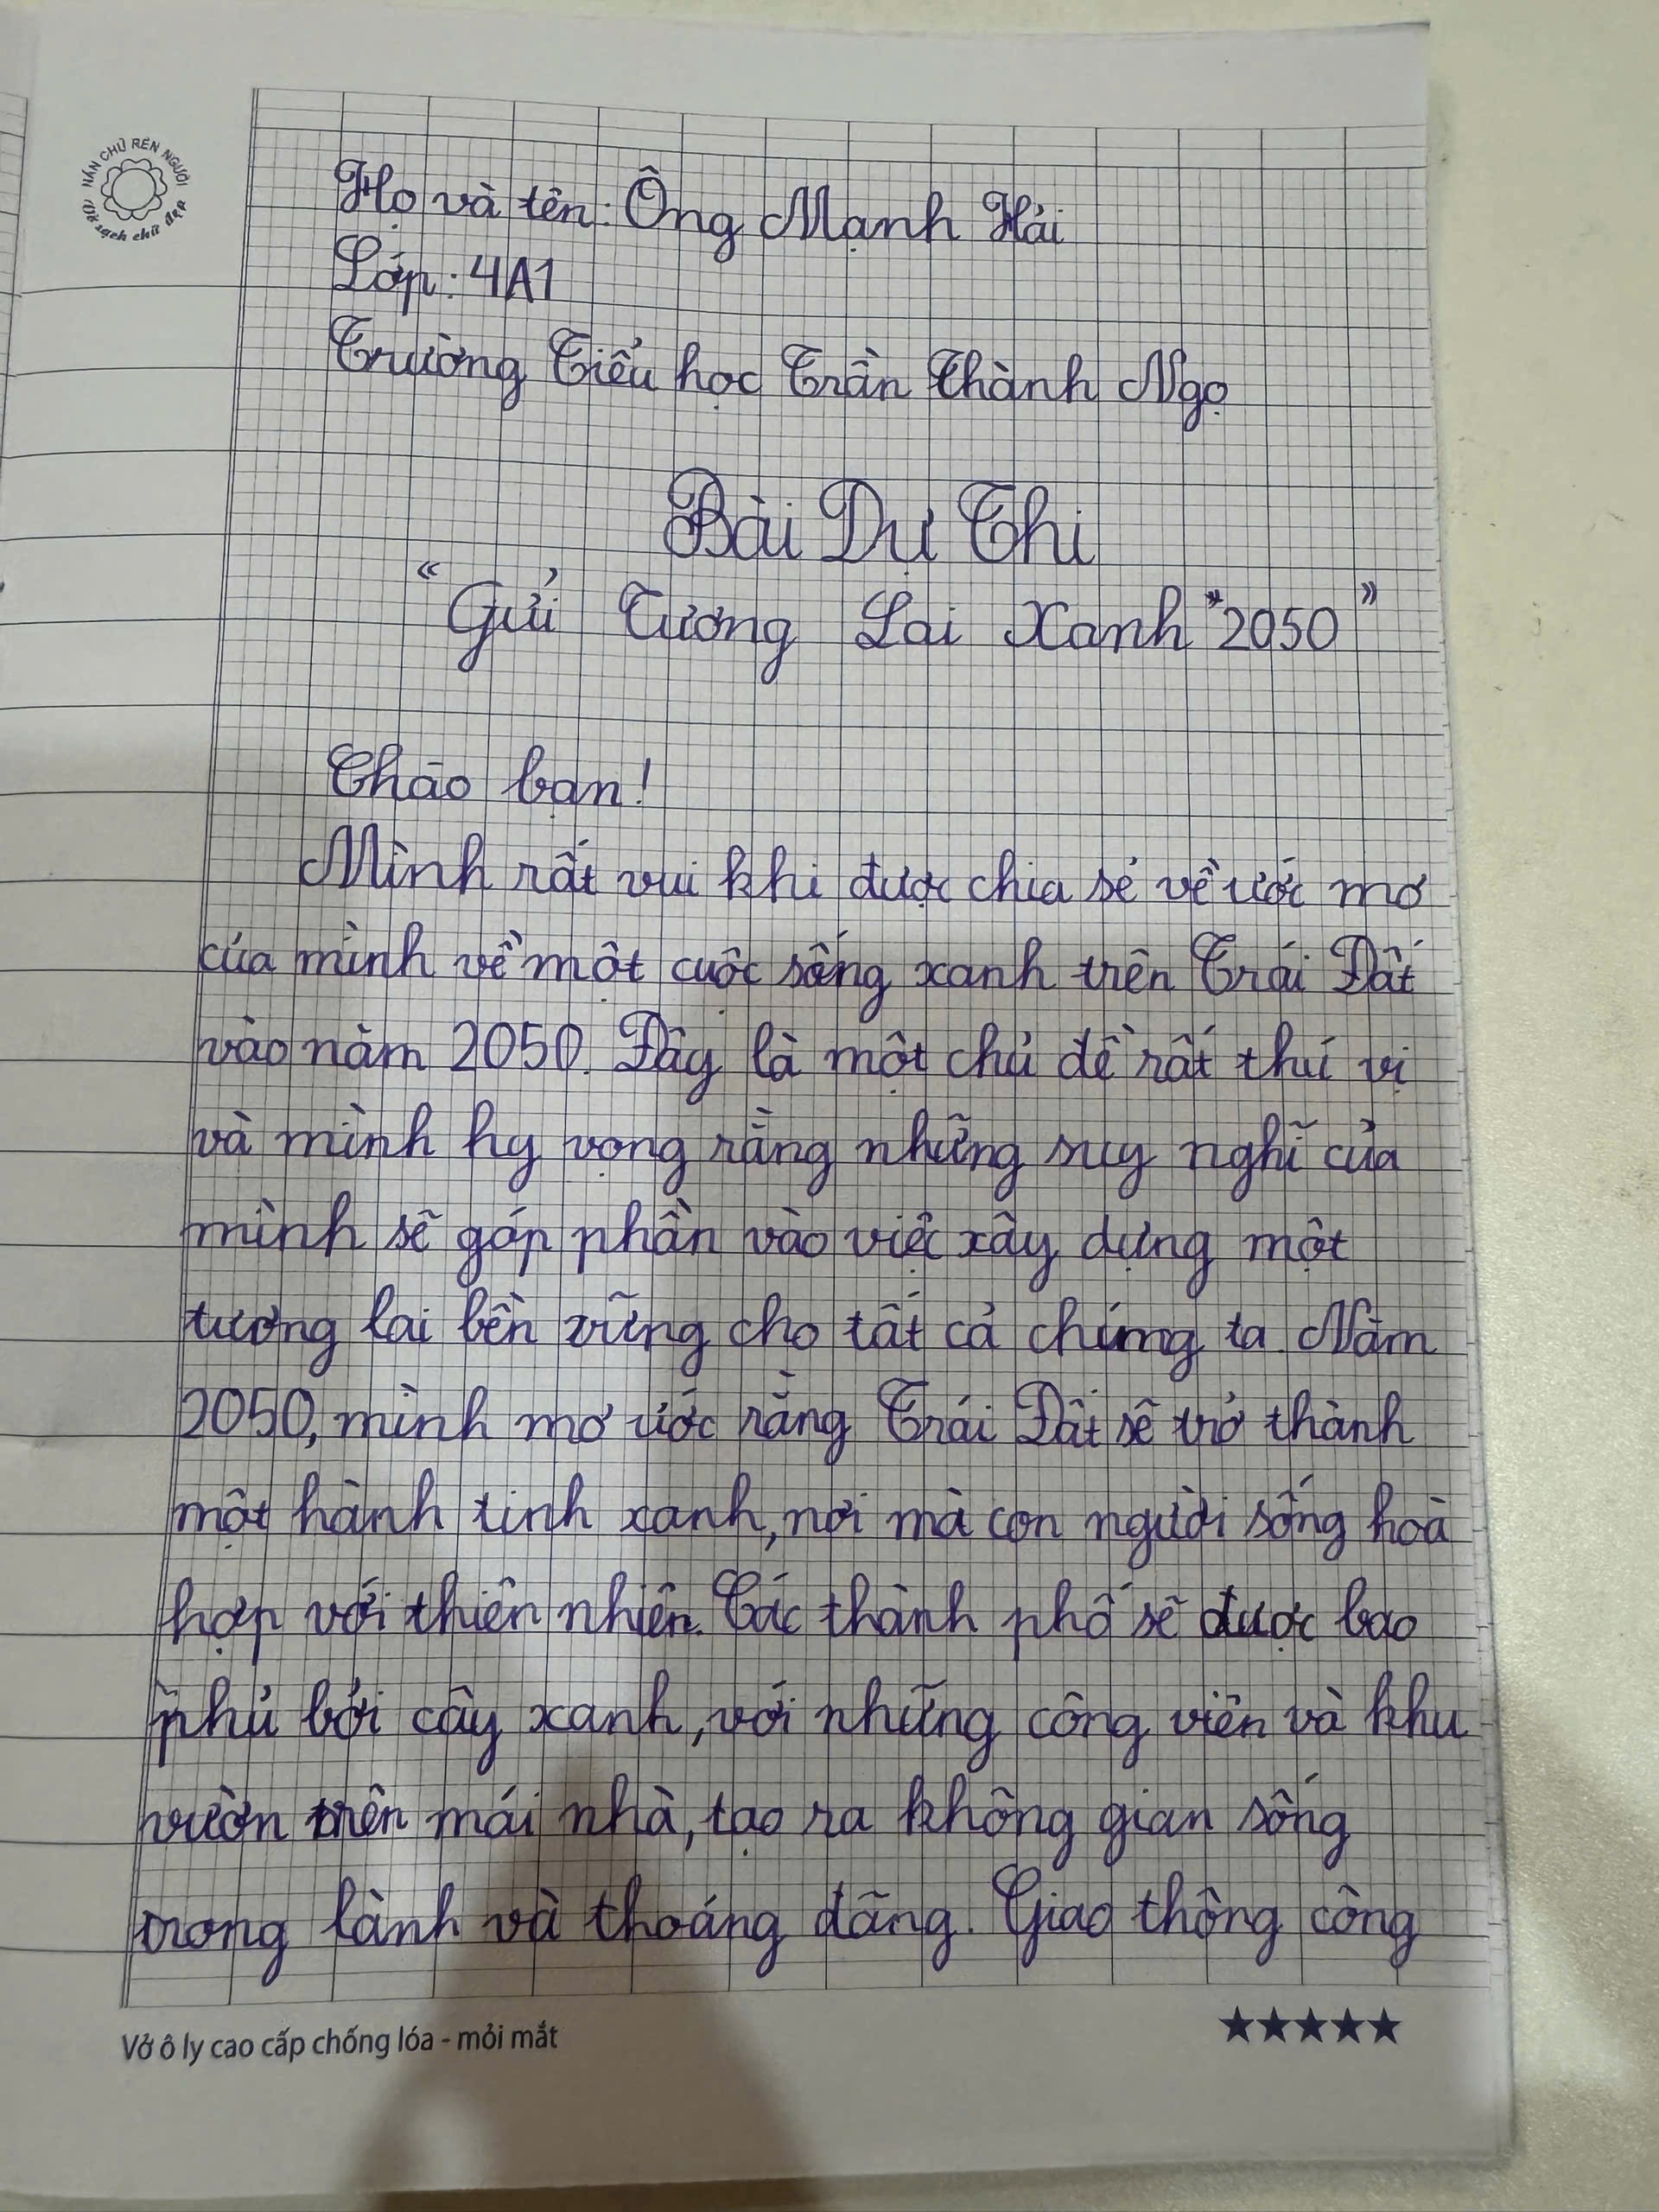 NẮN CHỮ RÈN NGƯỜI
Vở sạch chữ đẹp
Họ và tên: Ông Mạnh Hải
Lớp: 4A1
Trường Tiểu học Trần Thành Ngọ
Bài Dự Thi
"Gửi Tương Lai Xanh "2050"
Chào bạn!
Mình rất vui khi được chia sẻ về ước mơ
của mình về một cuộc sống xanh trên Trái Đất
vào năm 2050. Đây là một chủ đề rất thú vị
và mình hy vọng rằng những suy nghĩ của
mình sẽ góp phần vào việc xây dựng một
tương lai bền vững cho tất cả chúng ta. Năm
2050, mình mơ ước rằng Trái Đất sẽ trở thành
một hành tinh xanh, nơi mà con người sống hoà
hợp với thiên nhiên. Các thành phố sẽ được bao
phủ bởi cây xanh, với những công viên và khu
vườn trên mái nhà, tạo ra không gian sống
trong lành và thoáng đãng. Giao thông công
Vở ô ly cao cấp chống lóa - mỏi mắt